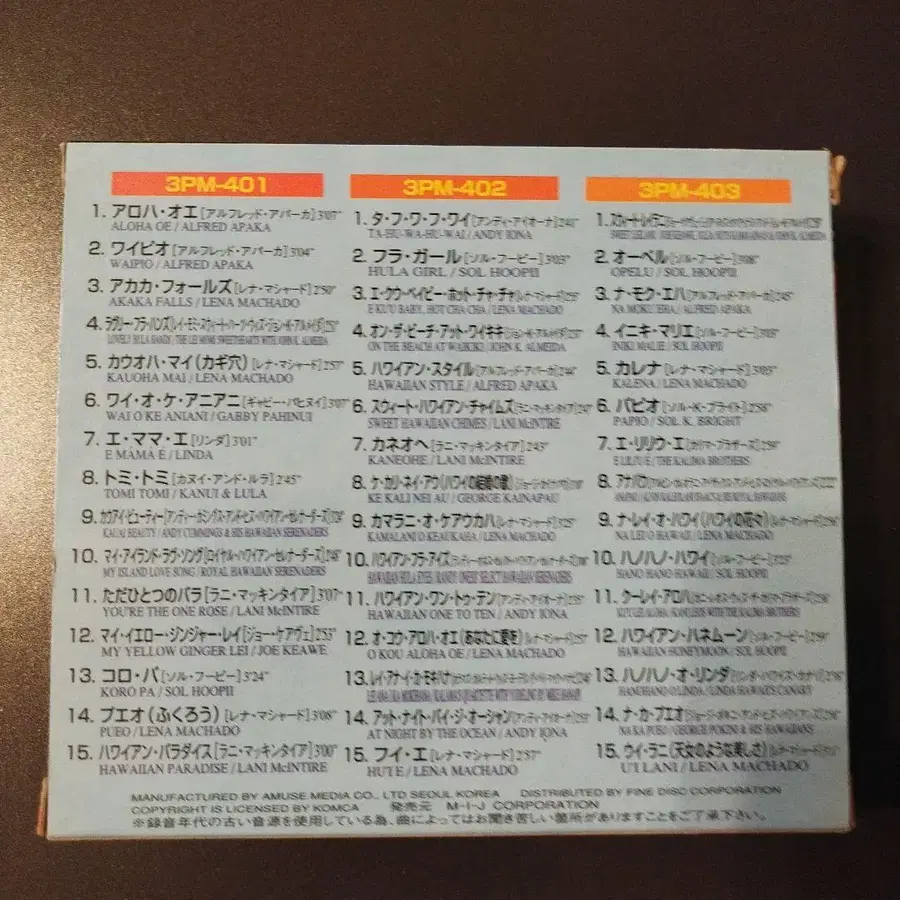 3PM-401
1. アロハ・オエ [アルフレッド・アパーカ] 3'07"
ALOHA OE / ALFRED APAKA
2. ワイピオ [アルフレッド・アパーカ] 3'04"
WAIPIO / ALFRED APAKA
3. アカカ・フォールズ [レナ・マシャード] 2'50"
AKAKA FALLS / LENA MACHADO
4. ラヴリー・フラ・ハンズ
LOVELY HULA HANDS / THE LEI MOMI SWEETHEARTS WITH JOHN K. ALMEIDA
5. カウオハ・マイ(カギ穴) [レナ・マシャード] 2'57"
KAUOHA MAI / LENA MACHADO
6. ワイ・オ・ケ・アニアニ [ギャビー・パヒヌイ] 3'07"
WAI O KE ANIANI / GABBY PAHINUI
7. エ・ママ・エ [リンダ] 3'01"
E MAMA E / LINDA
8. トミ・トミ [カヌイ・アンド・ルラ] 2'45"
TOMI TOMI / KANUI & LULA
9. カウアイ・ビューティー
KAUAI BEAUTY / ANDY CUMMINGS & HIS HAWAIIAN SERENADERS
10. マイ・アイランド・ラヴ・ソング [ロイヤル・ハワイアン・セレナーダーズ]
MY ISLAND LOVE SONG / ROYAL HAWAIIAN SERENADERS
11. ただひとつのバラ [ラニ・マッキンタイア] 3'07"
YOU'RE THE ONE ROSE / LANI McINTIRE
12. マイ・イエロー・ジンジャー・レイ [ジョー・ケアヴェ] 2'53"
MY YELLOW GINGER LEI / JOE KEAWE
13. コロ・パ [ソル・フーピー] 3'24"
KORO PA / SOL HOOPII
14. プエオ(ふくろう) [レナ・マシャード] 3'08"
PUEO / LENA MACHADO
15. ハワイアン・パラダイス [ラニ・マッキンタイア] 3'00"
HAWAIIAN PARADISE / LANI McINTIRE
3PM-402
1. タ・フ・ワ・フ・ワイ [アンディ・アイオーナ]
TA-HU-WA-HU-WAI / ANDY IONA
2. フラ・ガール [ソル・フーピー] 3'03"
HULA GIRL / SOL HOOPII
3. エ・クウ・ベイビー・ホット・チャ・チャ [レナ・マシャード]
E KUU BABY, HOT CHA CHA / LENA MACHADO
4. オン・ザ・ビーチ・アット・ワイキキ
ON THE BEACH AT WAIKIKI / JOHN K. ALMEIDA
5. ハワイアン・スタイル [アルフレッド・アパーカ]
HAWAIIAN STYLE / ALFRED APAKA
6. スウィート・ハワイアン・チャイムズ [ラニ・マッキンタイア]
SWEET HAWAIIAN CHIMES / LANI McINTIRE
7. カネオヘ [ラニ・マッキンタイア] 2'43"
KANEOHE / LANI McINTIRE
8. ケ・カリ・ネイ・アウ(ハワイの結婚の歌)
KE KALI NEI AU / GEORGE KAINAPAU
9. カマラニ・オ・ケアウカハ [レナ・マシャード]
KAMALANI O KEAUKAHA / LENA MACHADO
10. ハワイアン・フラ・アイズ
HAWAIIAN HULA EYES
11. ハワイアン・ワン・トゥ・テン [アンディ・アイオーナ]
HAWAIIAN ONE TO TEN / ANDY IONA
12. オ・コウ・アロハ・オエ(あなたに愛を) [レナ・マシャード]
O KOU ALOHA OE / LENA MACHADO
13.
14. アット・ナイト・バイ・ジ・オーシャン [アンディ・アイオーナ]
AT NIGHT BY THE OCEAN / ANDY IONA
15. フイ・エ [レナ・マシャード] 2'57"
HUI E / LENA MACHADO
3PM-403
1. スウィート・レイラニ
2. オーペル [ソル・フーピー] 3'08"
OPELU / SOL HOOPII
3. ナ・モク・エハ [アルフレッド・アパーカ] 2'45"
NA MOKU EHA / ALFRED APAKA
4. イニキ・マリエ [ソル・フーピー]
INIKI MALIE / SOL HOOPII
5. カレナ [レナ・マシャード] 3'03"
KALENA / LENA MACHADO
6. パピオ [ソル・K・ブライト] 2'58"
PAPIO / SOL K. BRIGHT
7. エ・リリウ・エ [カリマ・ブラザーズ]
E LILIU E / THE KALIMA BROTHERS
8. アナパウ
9. ナ・レイ・オ・ハワイ(ハワイの花々) [レナ・マシャード]
NA LEI O HAWAII / LENA MACHADO
10. ハノハノ・ハワイ [ソル・フーピー]
HANO HANO HAWAII / SOL HOOPII
11. クーレイ・アロハ
12. ハワイアン・ハネムーン [ソル・フーピー]
HAWAIIAN HONEYMOON / SOL HOOPII
13. ハノハノ・オ・リンダ
HANOHANO O LINDA / LINDA HAWAII'S CANARY
14. ナ・カ・プエオ
NA KA PUEO / GEORGE POKINI AND HIS HAWAIIANS
15. ウイ・ラニ(天女のような美しさ) [レナ・マシャード]
U'I LANI / LENA MACHADO
MANUFACTURED BY AMUSE MEDIA CO., LTD SEOUL KOREA DISTRIBUTED BY FINE DISC CORPORATION
COPYRIGHT IS LICENSED BY KOMCA 発売元 M-I-J CORPORATION
※録音年代の古い音源を使用している為、曲によってはお聞き苦しい箇所がありますことをご了承下さい。